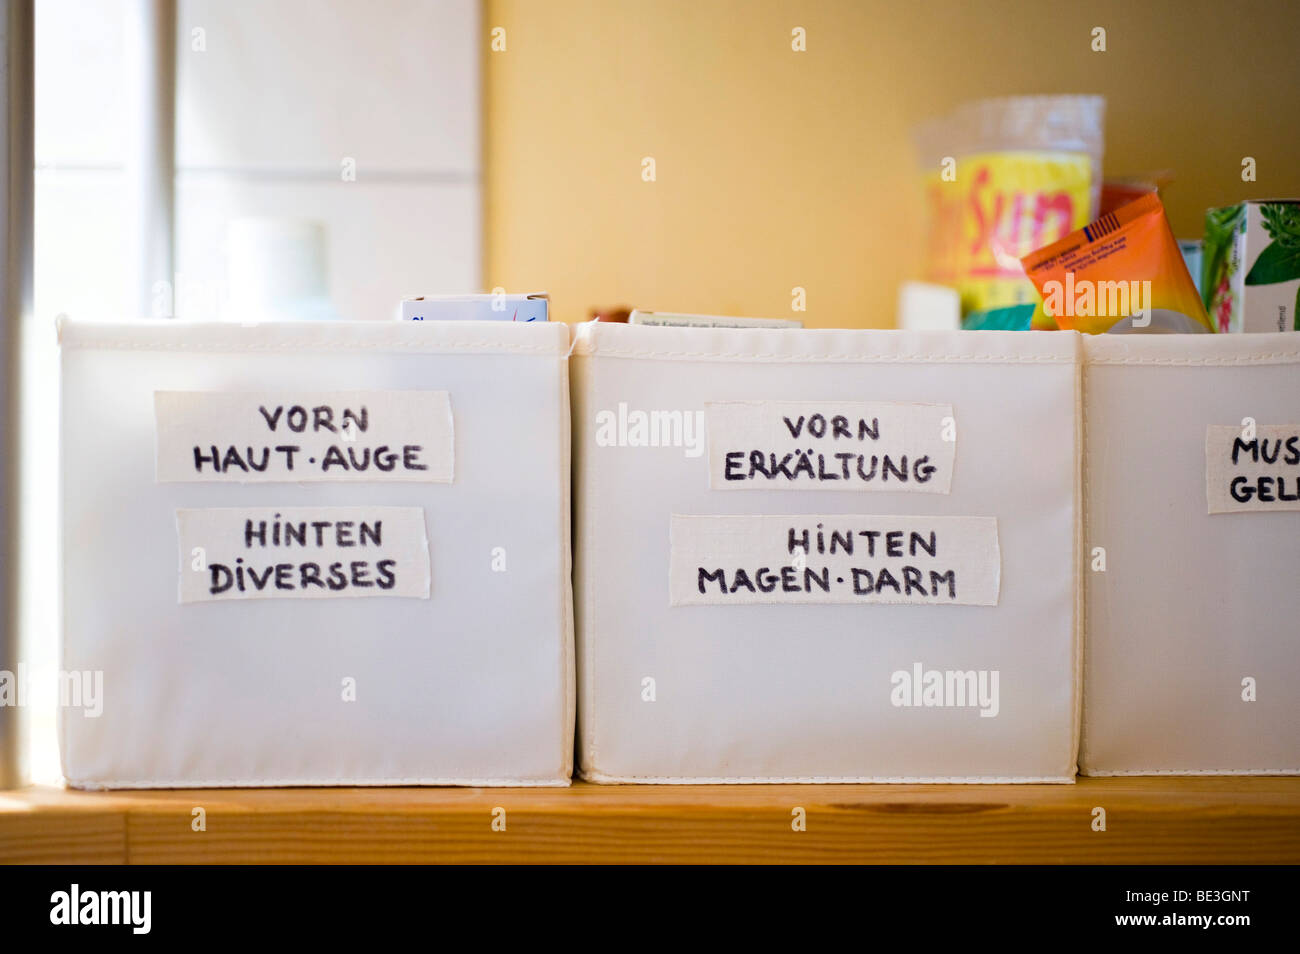 VORN
HAUT·AUGE
HINTEN
DIVERSES
VORN
ERKÄLTUNG
HINTEN
MAGEN·DARM
MUS
GEL
Sun
alamy
alamy
alamy
Image ID: BE3GNT
www.alamy.com